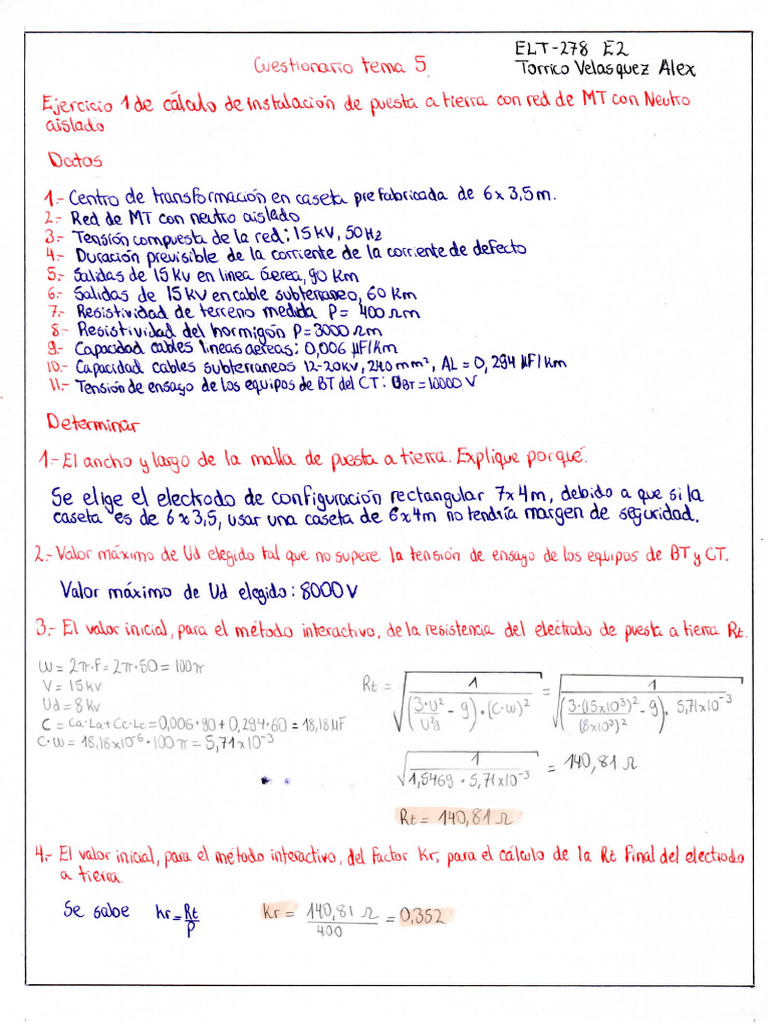 ELT-278 E2
Cuestionario tema 5
Torrico Velasquez Alex
Ejercicio 1 de cálculo de instalación de puesta a tierra con red de MT con Neutro
aislado
Datos
1.- Centro de transformación en caseta prefabricada de 6x3,5m.
2.- Red de MT con neutro aislado
3.- Tensión compuesta de la red: 15 kV, 50Hz
4.- Duración previsible de la corriente de la corriente de defecto
5.- Salidas de 15 Kv en linea áerea, 90 Km
6.- Salidas de 15 KV en cable subterraneo, 60 Km
7.- Resistividad de terreno medida P= 400 Ωm
8.- Resistividad del hormigón P=3000 Ωm
9.- Capacidad cables lineas aereas: 0,006 μF/Km
10.- Capacidad cables subterraneos 12-20KV, 240 mm², AL = 0,294 μF/Km
11.- Tensión de ensayo de los equipos de BT del CT: UBT = 10000 V
Determinar
1.- El ancho y largo de la malla de puesta a tierra. Explique porqué.
Se elige el electrodo de configuración rectangular 7x4m, debido a que si la
caseta es de 6x3,5, usar una caseta de 6x4m no tendría margen de seguridad.
2.- Valor máximo de Ud elegido tal que no supere la tensión de ensayo de los equipos de BT y CT.
Valor máximo de Ud elegido: 8000 V
3.- El valor inicial, para el método interactivo, de la resistencia del electrodo de puesta a tierra Rt.
W = 2π·F = 2π·50 = 100π
V = 15 kv
Ud = 8 kv
C = Ca·La + Cc·Lc = 0,006·90 + 0,294·60 = 18,18 μF
C·W = 18,18x10⁻⁶ · 100π = 5,71x10⁻³
Rt = √(1/((3·U²/U²d - 9)·(C·W)²)) = √(1/((3·(15x10³)²/(8x10³)² - 9)· 5,71x10⁻³))
√(1/(1,5469 · 5,71x10⁻³)) = 140,81 Ω
Rt = 140,81 Ω
4.- El valor inicial, para el método interactivo, del factor Kr, para el cálculo de la Rt final del electrodo
a tierra.
Se sabe kr = Rt/P Kr = 140,81 Ω/400 = 0,352